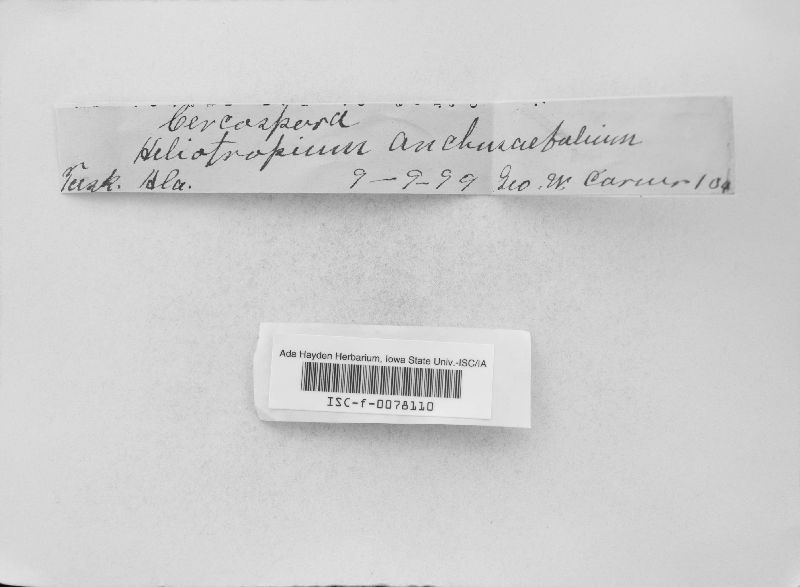 Cercospora
Heliotropium anchusaefolium
Tusk. Ala. 9-9-99 Geo. W. Carver 104
Ada Hayden Herbarium, Iowa State Univ.-ISC/IA
ISC-f-0078110